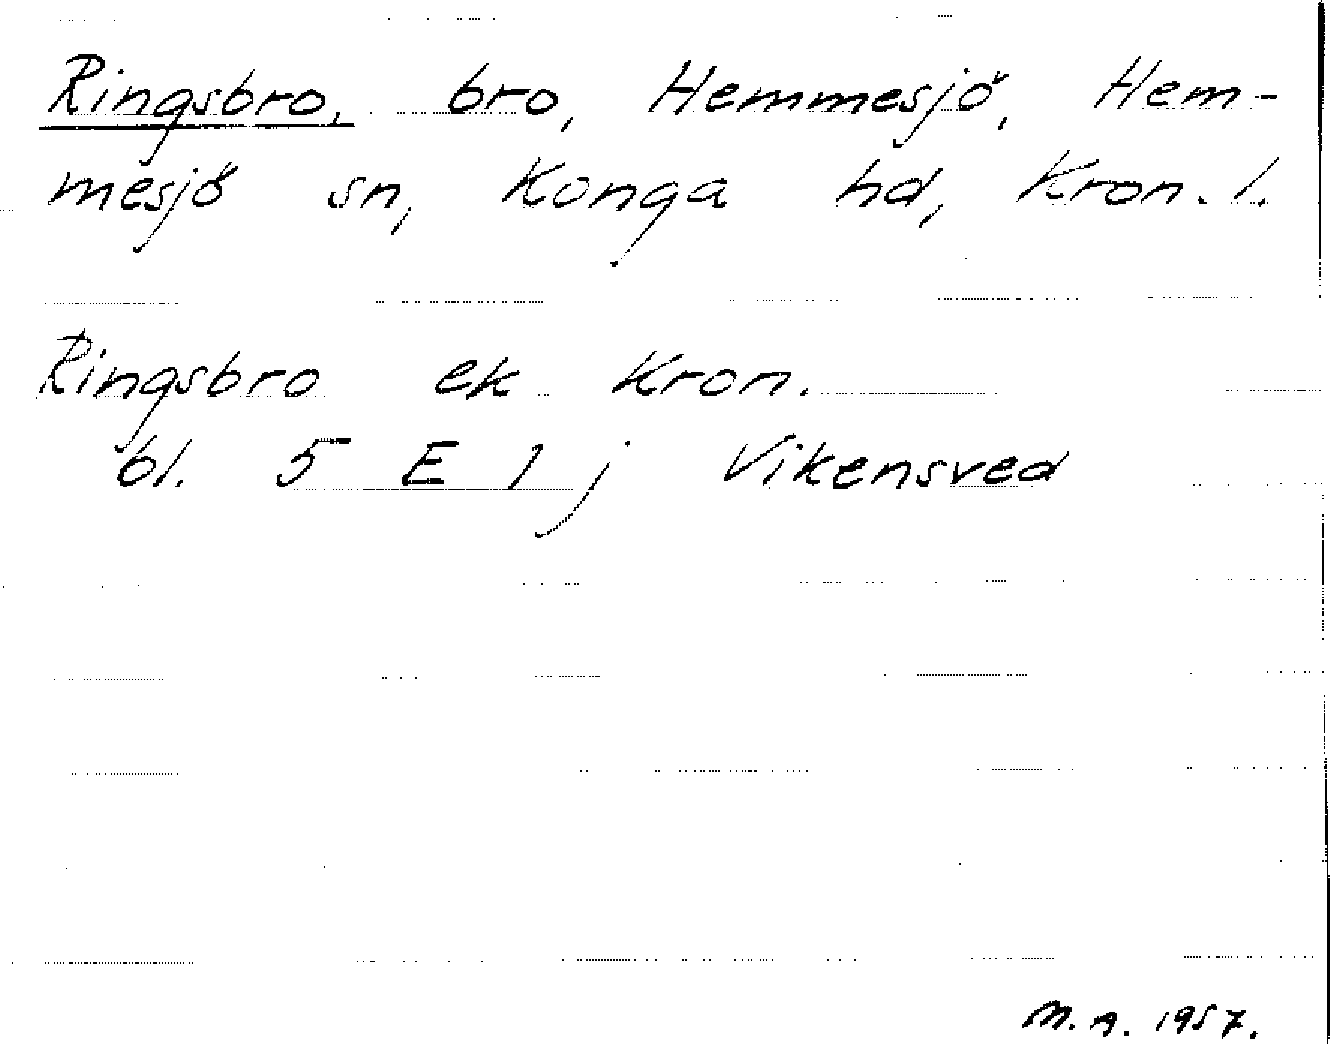 Ringsbro, bro, Hemmesjö, Hem-
mesjö sn, Konga hd, Kron. l.
Ringsbro ek Kron.
bl. 5 E 1 j Vikensved
M. A. 1957.